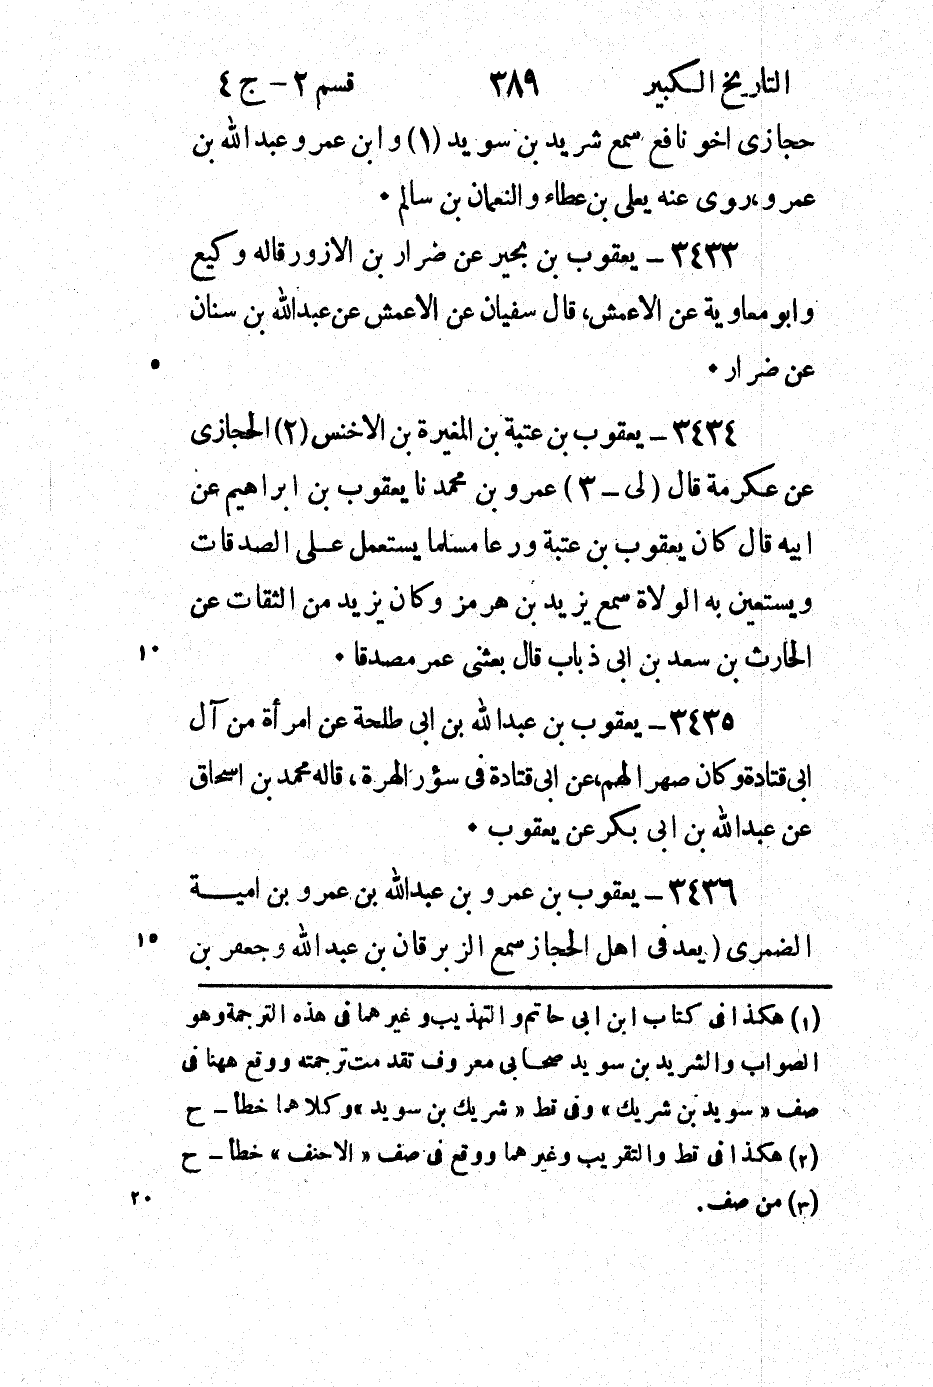 التاريخ الكبير ٣٨٩ قسم ٢ - ج ٤
حجازى اخو نافع سمع شريد بن سويد (١) وابن عمر وعبد الله بن
عمرو، روى عنه يعلى بن عطاء والنعمان بن سالم ٠
٣٤٣٣ - يعقوب بن بحير عن ضرار بن الازور قاله وكيع
وابو معاوية عن الاعمش، قال سفيان عن الاعمش عن عبدالله بن سنان
عن ضرار ٠ ٥
٣٤٣٤ - يعقوب بن عتبة بن المغيرة بن الاخنس (٢) الحجازى
عن عكرمة قال (لى - ٣) عمرو بن محمد نا يعقوب بن ابراهيم عن
ابيه قال كان يعقوب بن عتبة ورعا مسلما يستعمل على الصدقات
ويستعين به الولاة سمع يزيد بن هرمز وكان يزيد من الثقات عن
الحارث بن سعد بن ابى ذباب قال بعثنى عمر مصدقا ٠ ١٠
٣٤٣٥ - يعقوب بن عبدالله بن ابى طلحة عن امرأة من آل
ابى قتادة وكان صهرا لهم، عن ابى قتادة فى سؤر الهرة، قاله محمد بن اسحاق
عن عبدالله بن ابى بكر عن يعقوب ٠
٣٤٣٦ - يعقوب بن عمرو بن عبدالله بن عمرو بن امية
الضمرى (يعد فى اهل الحجاز سمع الزبرقان بن عبدالله وجعفر بن ١٥
(١) هكذا فى كتاب ابن ابى حاتم والتهذيب وغيرهما فى هذه الترجمة وهو
الصواب والشريد بن سويد صحابى معروف تقدمت ترجمته ووقع ههنا فى
صف « سويد بن شريك » وفى قط « شريك بن سويد » وكلاهما خطأ - ح
(٢) هكذا فى قط والتقريب وغيرهما ووقع فى صف « الاحنف » خطأ - ح
(٣) من صف. ٢٠